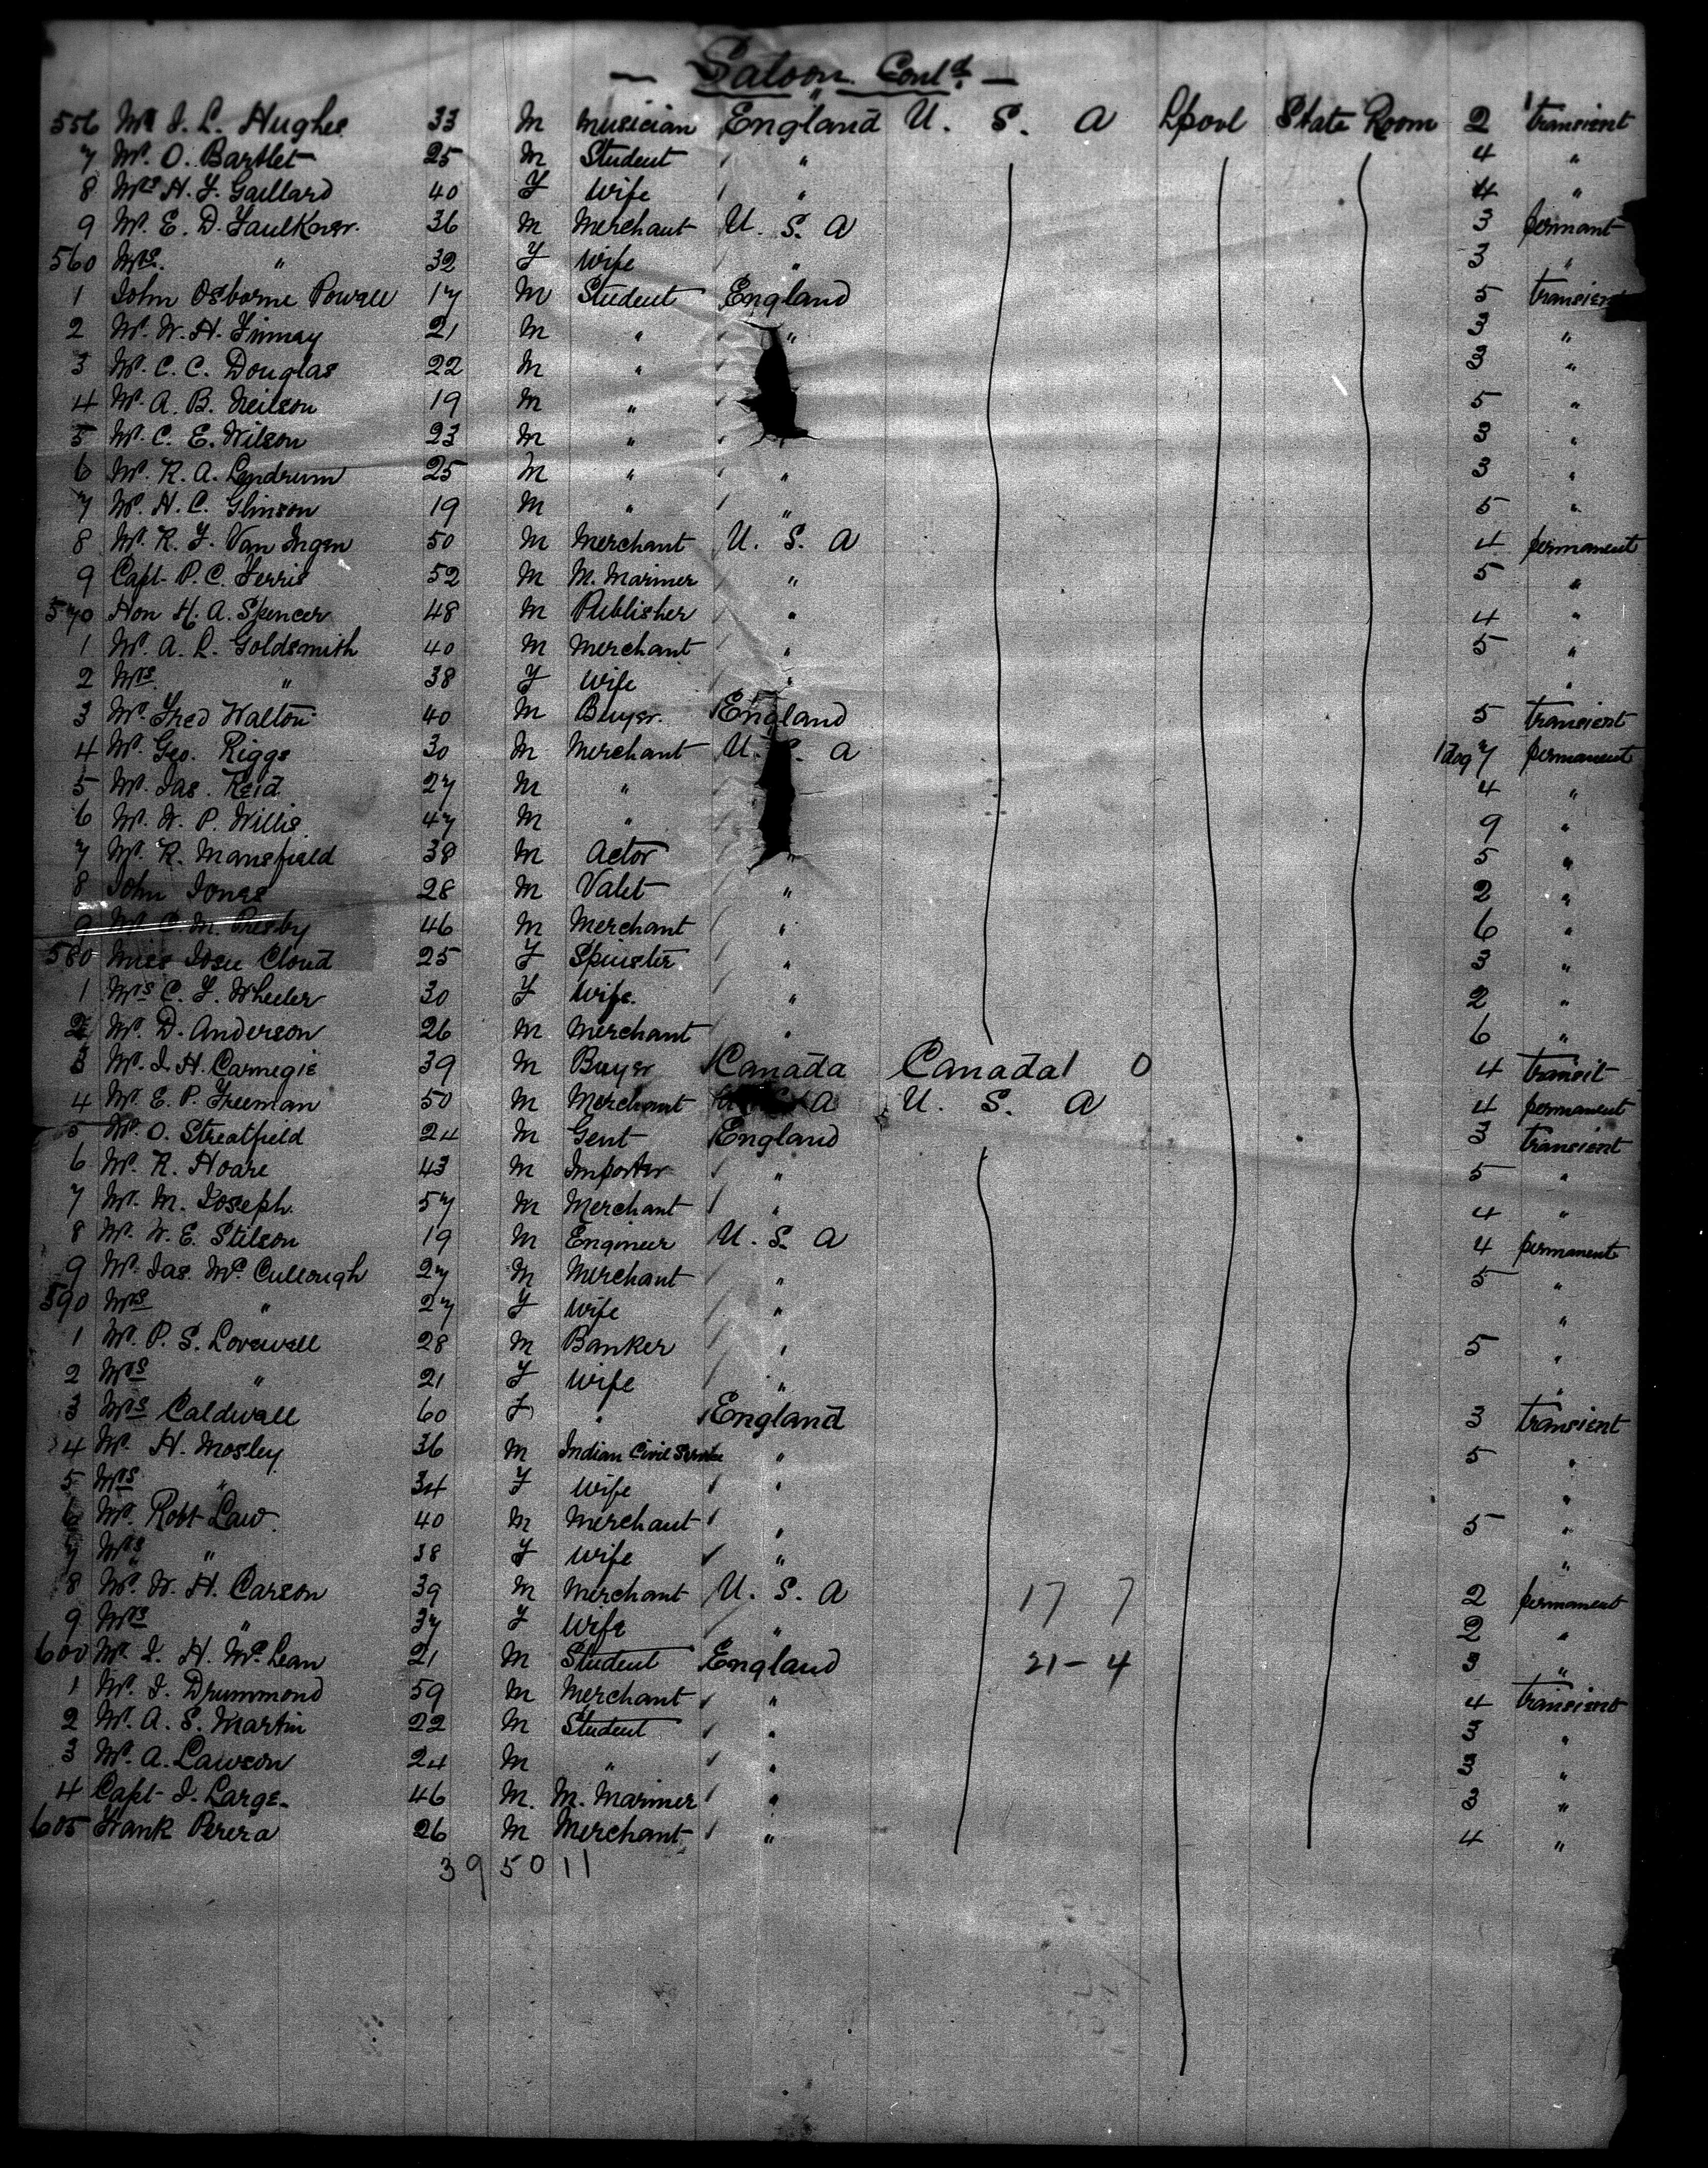 — Saloon Contd —
556 Mr J. L. Hughes 33 M Musician England U. S. A Lpool State Room 2 transient
7 Mr. O. Bartlet 25 M Student " 4 "
8 Mrs H. F. Gaillard 40 F Wife " 4 "
9 Mr. E. D. Faulkner 36 M Merchant U. S. A 3 permant
560 Mrs. " 32 F Wife " 3 "
1 John Osborne Powell 17 M Student England 5 transient
2 Mr. W. H. Finnay 21 M " " 3 "
3 Mr. C. C. Douglas 22 M " 3 "
4 Mr. A. B. Neilson 19 M " 5 "
5 Mr. C. E. Wilson 23 M " 3 "
6 Mr. R. A. Lendrum 25 M " " 3 "
7 Mr. H. C. Glinson 19 M " " 5 "
8 Mr. R. F. Van Ingen 50 M Merchant U. S. A 4 permanent
9 Capt. P. C. Ferris 52 M M. Mariner " 5 "
570 Hon H. A. Spencer 48 M Publisher " 4 "
1 Mr. A. L. Goldsmith 40 M Merchant " 5 "
2 Mrs " 38 F Wife " "
3 Mr. Fred Walton 40 M Buyer England 5 transient
4 Mr. Geo. Riggs 30 M Merchant U. S. A 1 dog 7 permanent
5 Mr. Jas. Reid 27 M " 4 "
6 Mr. W. P. Willis 47 M " 9 "
7 Mr. R. Mansfield 38 M Actor " 5 "
8 John Jones 28 M Valet " 2 "
9 Mr C. M. Presby 46 M Merchant " 6 "
580 Miss Josie Cloud 25 F Spinster " 3 "
1 Mrs C. F. Wheeler 30 F Wife " 2 "
2 Mr. D. Anderson 26 M Merchant " 6 "
3 Mr. J. H. Carnegie 39 M Buyer Canada Canada 1 0 4 transit
4 Mr. E. P. Freeman 50 M Merchant A U. S. A 4 permanent
5 Mr. O. Streatfield 24 M Gent England 3 transient
6 Mr. R. Hoare 43 M Importer " 5 "
7 Mr. M. Joseph 57 M Merchant " 4 "
8 Mr. W. E. Stilson 19 M Engineer U. S. A 4 permanent
9 Mr. Jas. McCullough 27 M Merchant " 5 "
590 Mrs " 27 F Wife " "
1 Mr. P. S. Lovewell 28 M Banker " 5 "
2 Mrs " 21 F Wife " "
3 Mrs Caldwell 60 F " England 3 transient
4 Mr. H. Mosley 36 M Indian Civil Service " 5 "
5 Mrs " 34 F Wife " "
6 Mr. Robt Law 40 M Merchant " 5 "
7 Mrs " 38 F Wife " "
8 Mr. W. H. Carson 39 M Merchant U. S. A 17 7 2 permanent
9 Mrs " 37 F Wife " 2 "
600 Mr. J. H. McLean 21 M Student England 21 - 4 3 "
1 Mr. J. Drummond 59 M Merchant " 4 transient
2 Mr. A. S. Martin 22 M Student " 3 "
3 Mr. A. Lawson 24 M " " 3 "
4 Capt. J. Large 46 M. M. Mariner " 3 "
605 Frank Perera 26 M Merchant " 4 "
39 50 11